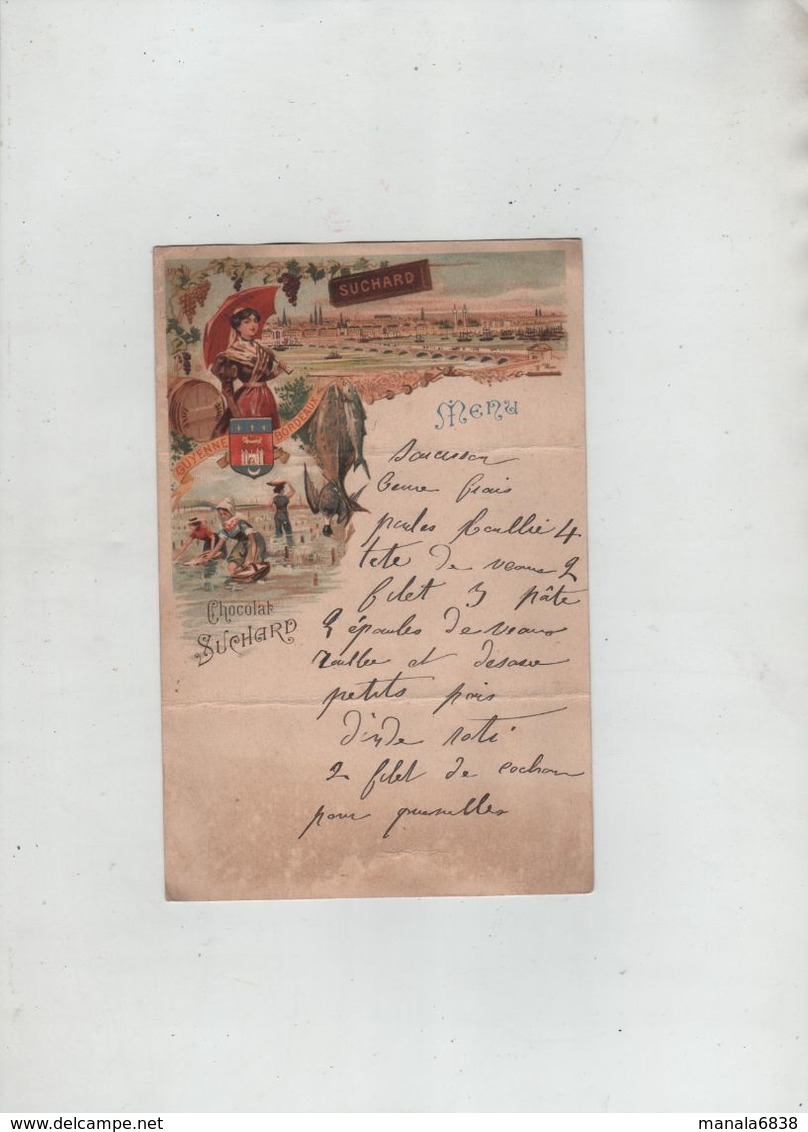 SUCHARD
GUYENNE BORDEAUX
Menu
Chocolat
SUCHARD
saucisson
beure frais
4
tete de veaux 2
filet 3 pâte
2 épaules de veaux
roullee et
petits pois
d'inde roti
2 filet de cochon
pour quenelles
www.delcampe.net
manala6838